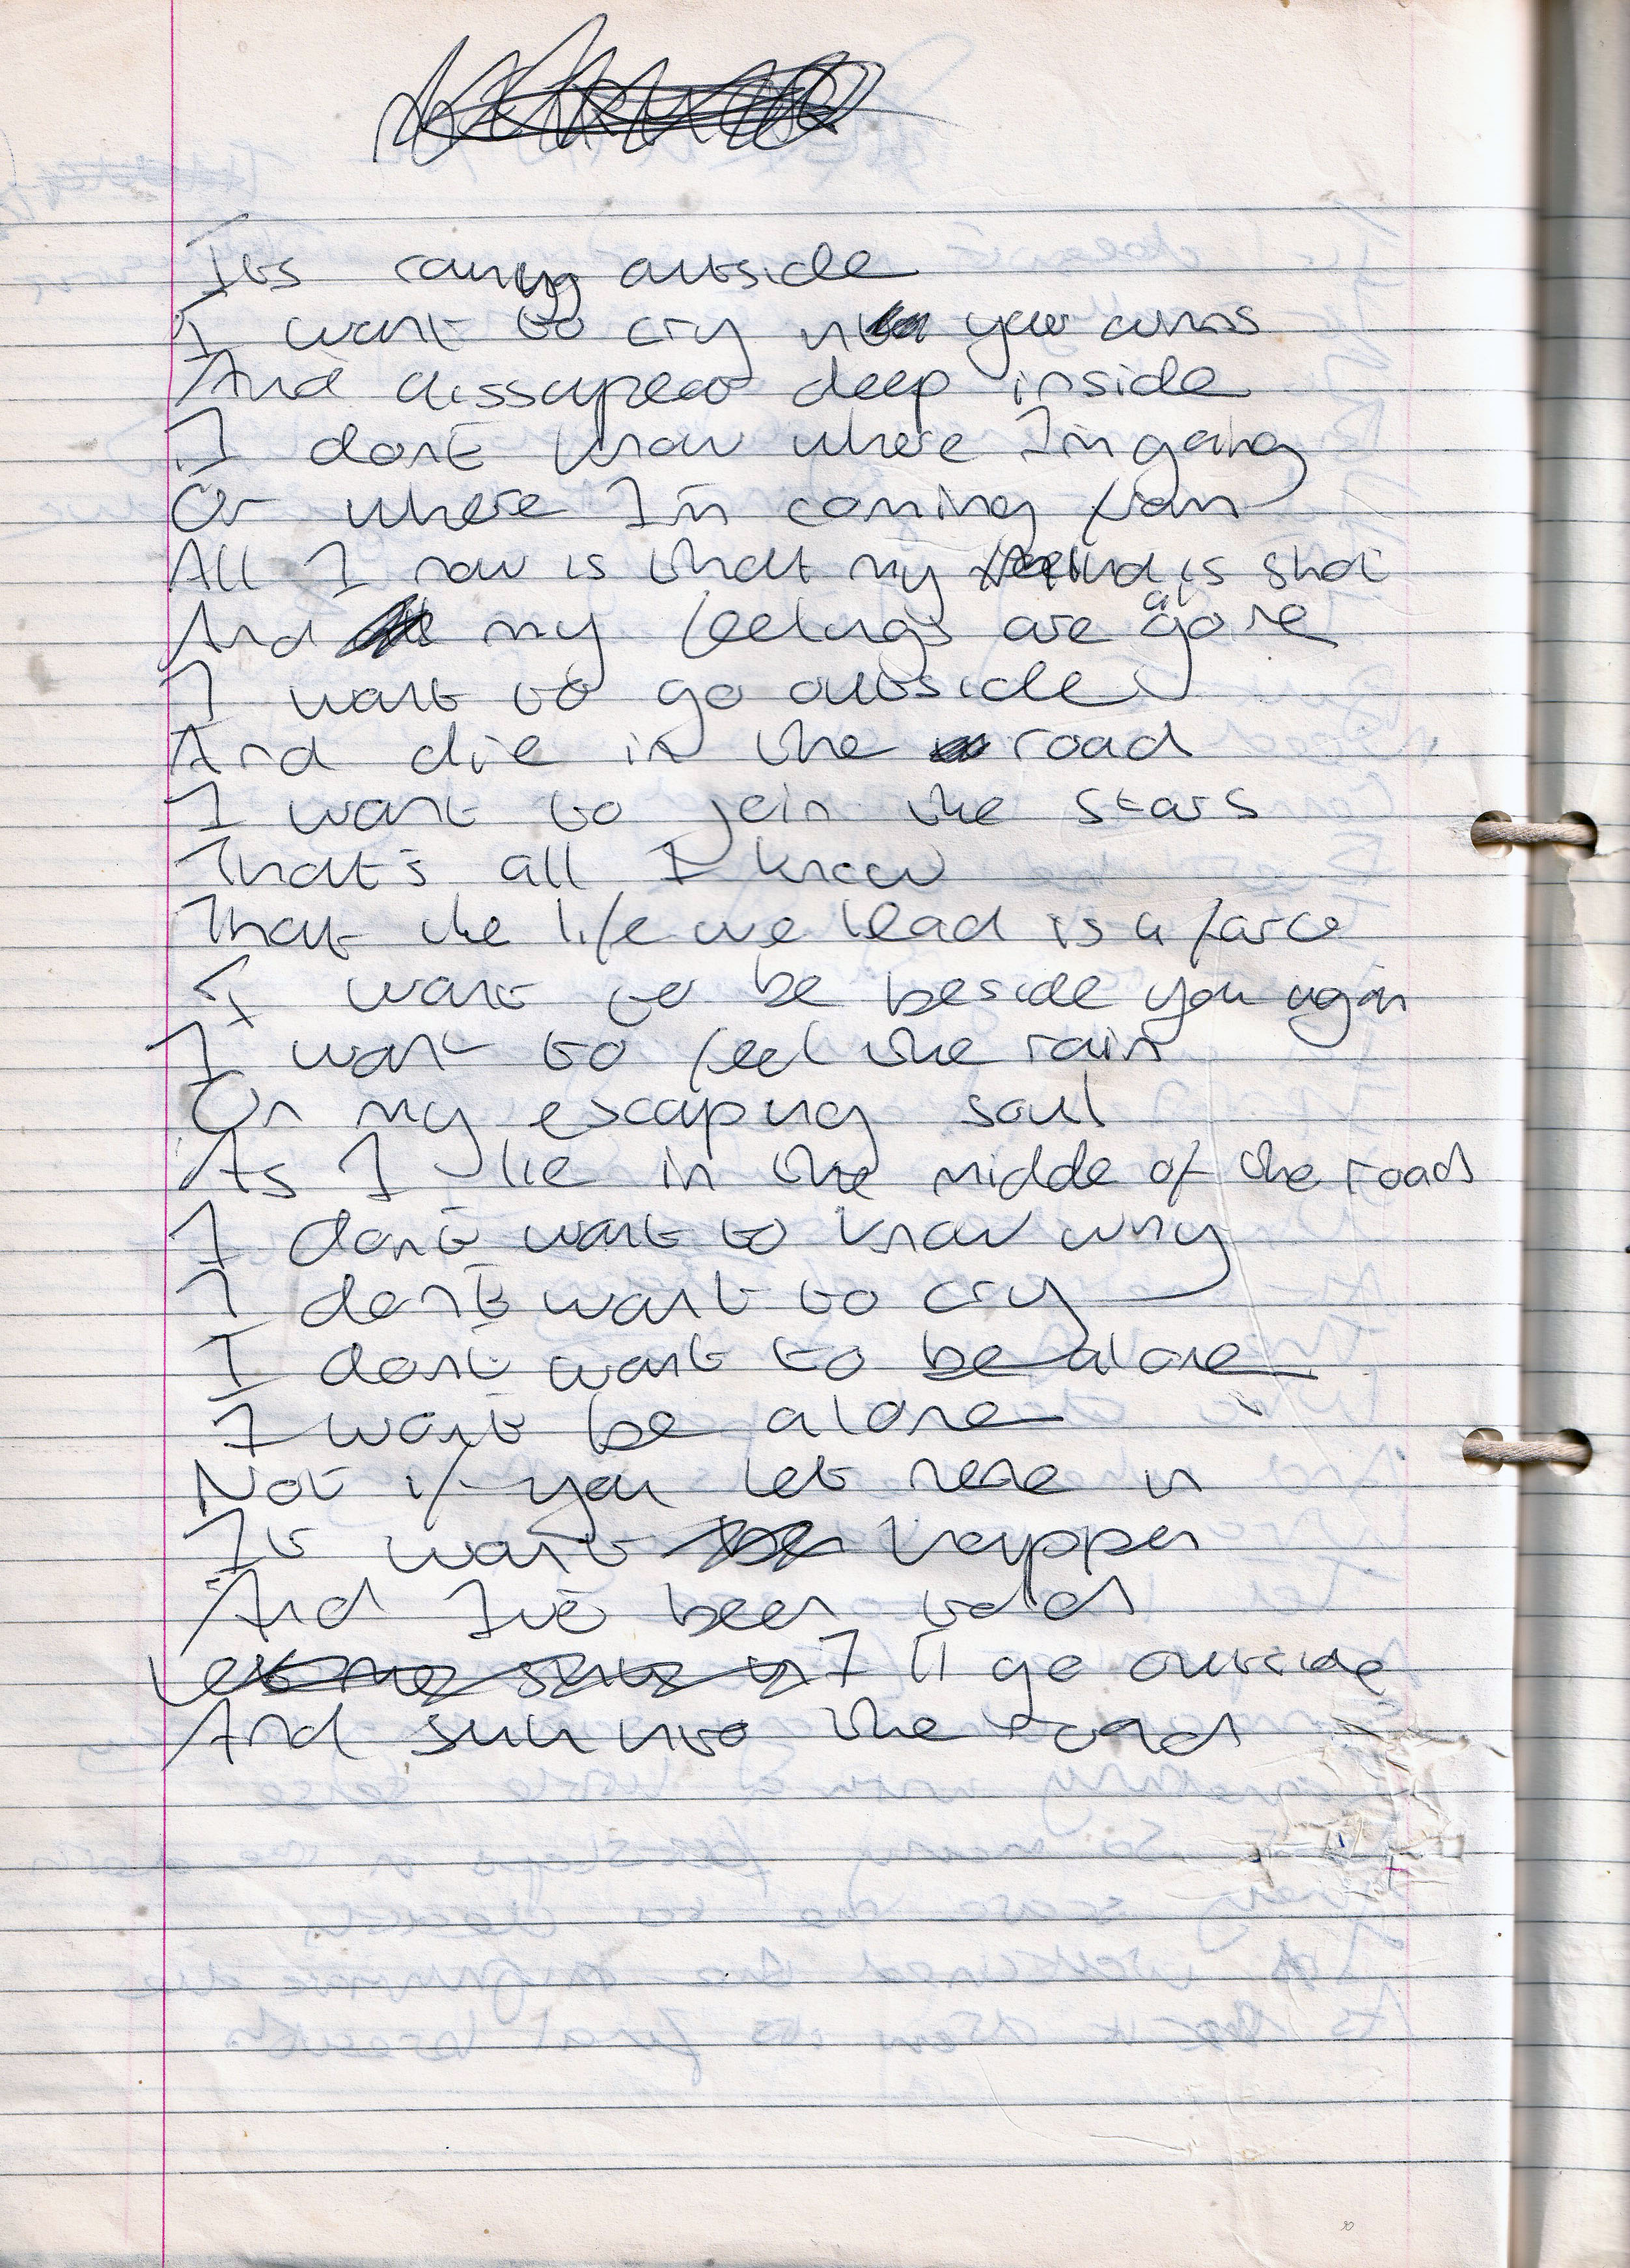 Its raining outside
I want to cry in your arms
And dissapear deep inside
I don't know where I'm going
Or where I'm coming from
All I now is that my mind is shot
And my feelings are all gone
I want to go outside
And die in the road
I want to join the stars
That's all I know
That the life we lead is a farce
I want to be beside you again
I want to feel the rain
On my escaping soul
As I lie in the middle of the road
I don't want to know why
I don't want to cry
I don't want to be alone
I won't be alone
Not if you let me in
It won't happen
And I've been told
Let me I'll go outside
And sink into the road